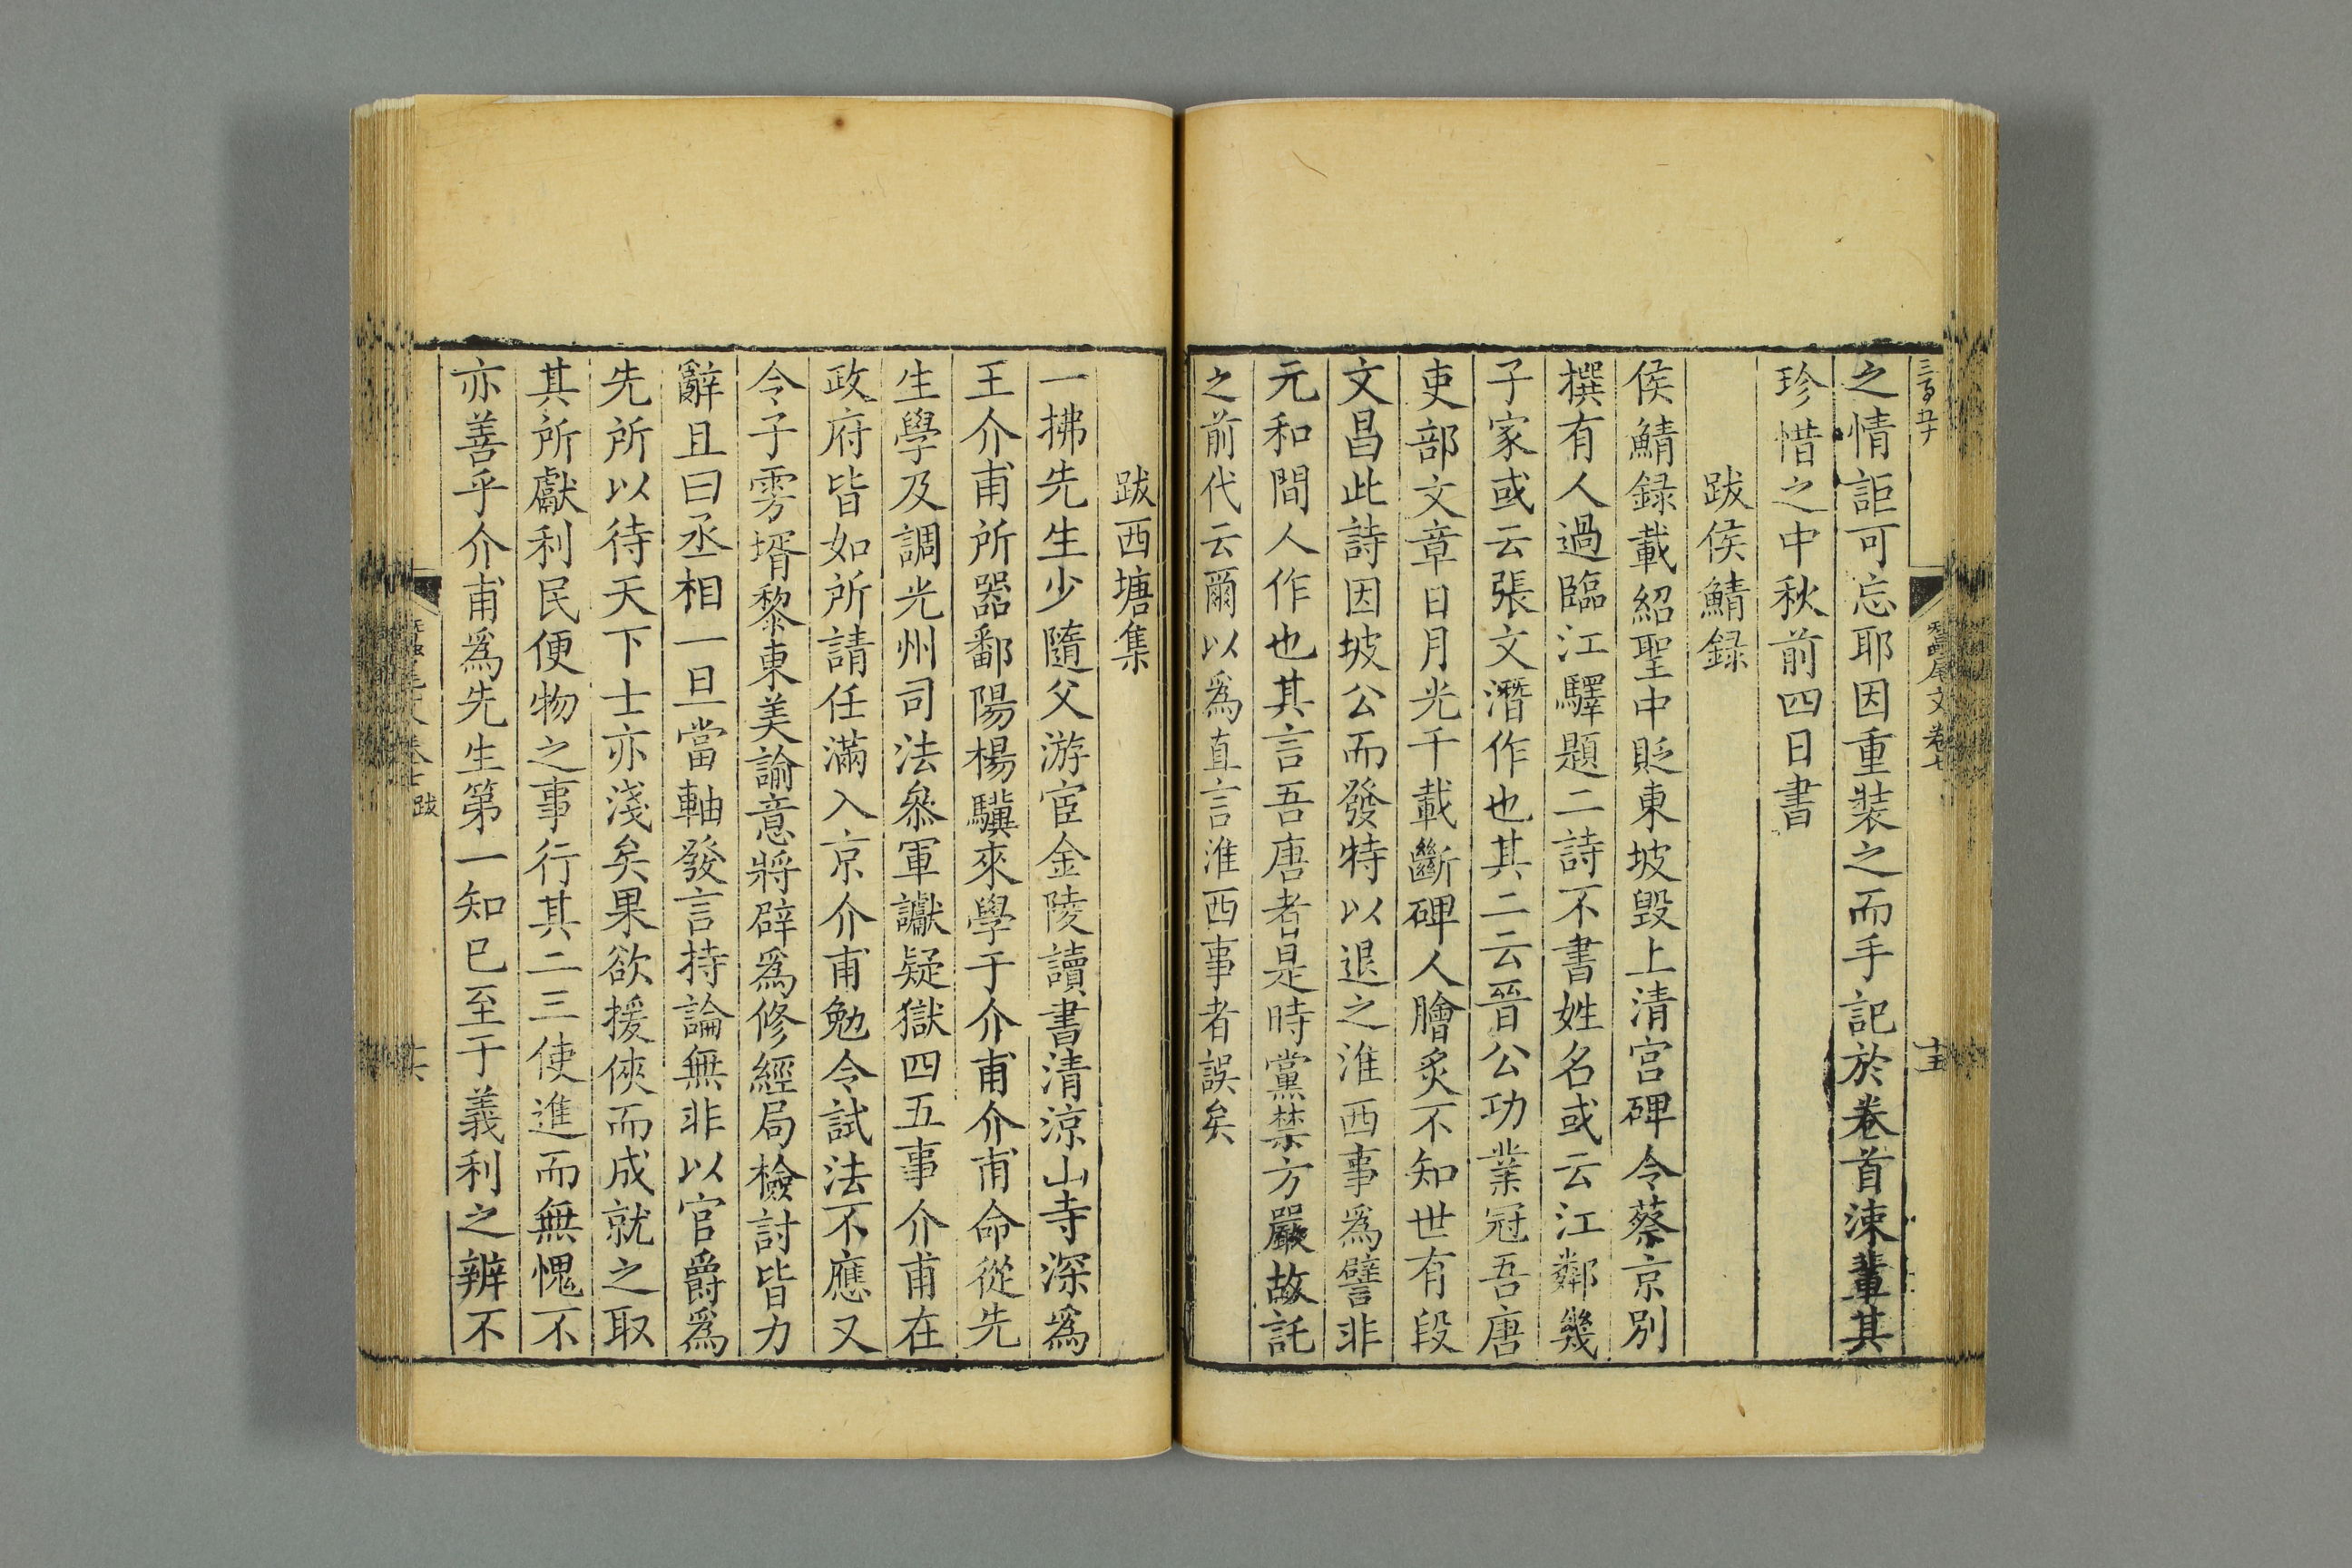 之情詎可忘耶因重装之而手記於卷首涷輩其
珍惜之中秋前四日書
跋侯鯖録
侯鯖録載紹聖中貶東坡毁上清宫碑令蔡京别
撰有人過臨江驛題二詩不書姓名或云江鄰幾
子家或云張文潛作也其二云晉公功業冠吾唐
吏部文章日月光千載斷碑人膾炙不知世有段
文昌此詩因坡公而發特以退之淮西事爲譬非
元和間人作也其言吾唐者是時黨禁方嚴故託
之前代云爾以爲直言淮西事者誤矣
跋西塘集
一拂先生少隨父游宦金陵讀書清涼山寺深爲
王介甫所器鄱陽楊驥來學于介甫介甫命從先
生學及調光州司法叅軍讞疑獄四五事介甫在
政府皆如所請任滿入京介甫勉令試法不應又
令子雱壻黎東美諭意將辟爲修經局檢討皆力
辭且曰丞相一旦當軸發言持論無非以官爵爲
先所以待天下士亦淺矣果欲援俠而成就之取
其所獻利民便物之事行其二三使進而無愧不
亦善乎介甫爲先生第一知巳至于義利之辨不
蠶尾文卷七
十五
跋
十六